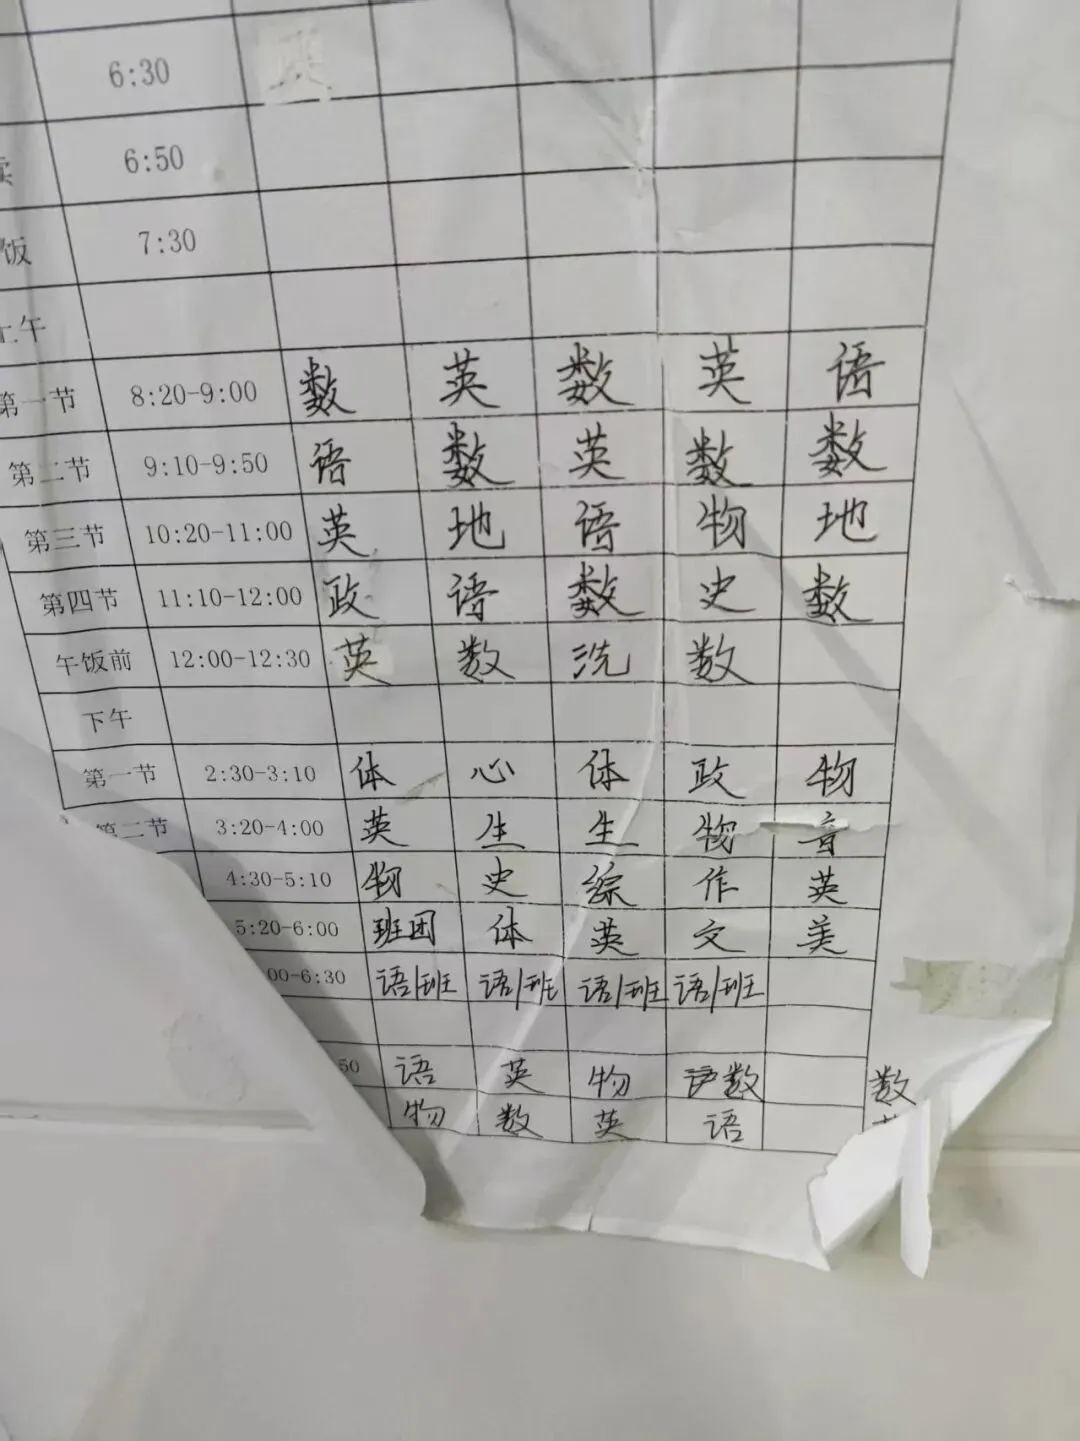 6:30
读 6:50
饭 7:30
上午
第一节 8:20-9:00 数 英 数 英 语
第二节 9:10-9:50 语 数 英 数 数
第三节 10:20-11:00 英 地 语 物 地
第四节 11:10-12:00 政 语 数 史 数
午饭前 12:00-12:30 英 数 洗 数
下午
第一节 2:30-3:10 体 心 体 政 物
第二节 3:20-4:00 英 生 生 物 音
4:30-5:10 物 史 综 作 英
5:20-6:00 班团 体 英 文 美
00-6:30 语/班 语/班 语/班 语/班
50 语 英 物 数 数
物 数 英 语